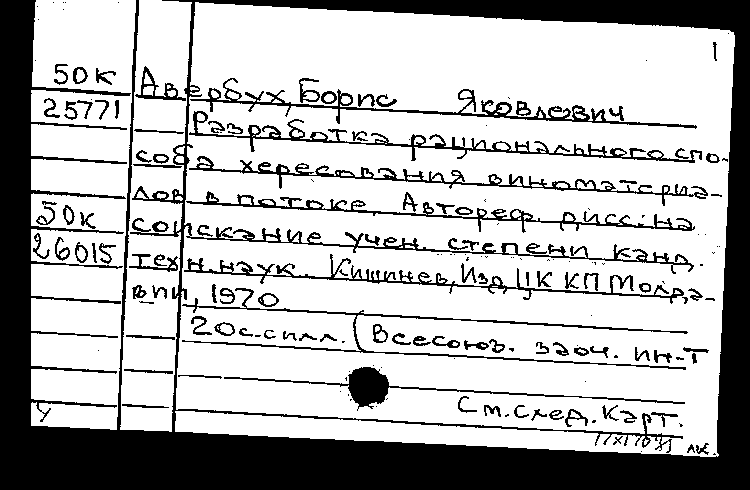 1
50к Авербух, Борис Яковлевич
25771 Разработка рационального спо-
соба хересования виноматериа-
лов в потоке. Автореф. дисс. на
50к соискание учен. степени канд.
26015 техн. наук. Кишинев, Изд ЦК КП Молда-
вии, 1970
20с.с илл. (Всесоюз. заоч. ин-т
См. след. карт.